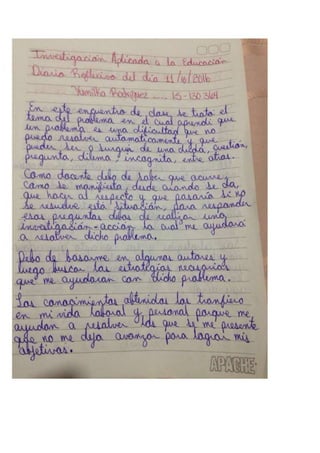 Investigación Aplicada a la Educación
Diario Reflexivo del día 11/6/2016
Yamilka Rodríguez ..... 15-130 364
En este encuentro de clase se trató el
tema del problema en el cual aprendí que
un problema es una dificultad que no
puedo resolver automaticamente y que
pueder ser o surgir de una duda, cuestión,
pregunta, dilema, incognita, entre otras.
Como docente debo de saber que ocurre,
como se manifiesta, desde cuando se da,
que hacer al respecto y que pasaría si no
se resuelve esta situación, para responder
esas preguntas debo de realizar una
investigación-acción la cual me ayudará
a resolver dicho problema.
Debo de basarme en algunos autores y
luego buscar las estrategias necesarias
que me ayudaran con dicho problema.
Los conocimientos obtenidos los tranfiero
en mi vida laboral y personal porque me
ayudan a resolver los que se me presente
que no me deja avanzar para lograr mis
objetivos.
APACHE